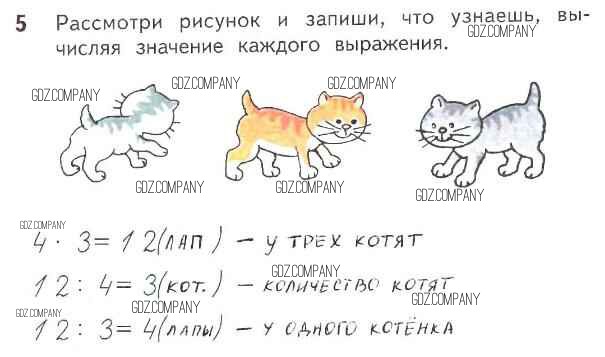 5 Рассмотри рисунок и запиши, что узнаешь, вы-
GDZ.COMPANY
числяя значение каждого выражения.
GDZ.COMPANY GDZ.COMPANY GDZ.COMPANY
GDZ.COMPANY GDZ.COMPANY
GDZ.COMPANY GDZ.COMPANY GDZ.COMPANY
GDZ.COMPANY
4 · 3 = 12 (ЛАП) – У ТРЕХ КОТЯТ
GDZ.COMPANY
12 : 4 = 3 (КОТ.) – КОЛИЧЕСТВО КОТЯТ
GDZ.COMPANY GDZ.COMPANY
12 : 3 = 4 (ЛАПЫ) – У ОДНОГО КОТЁНКА